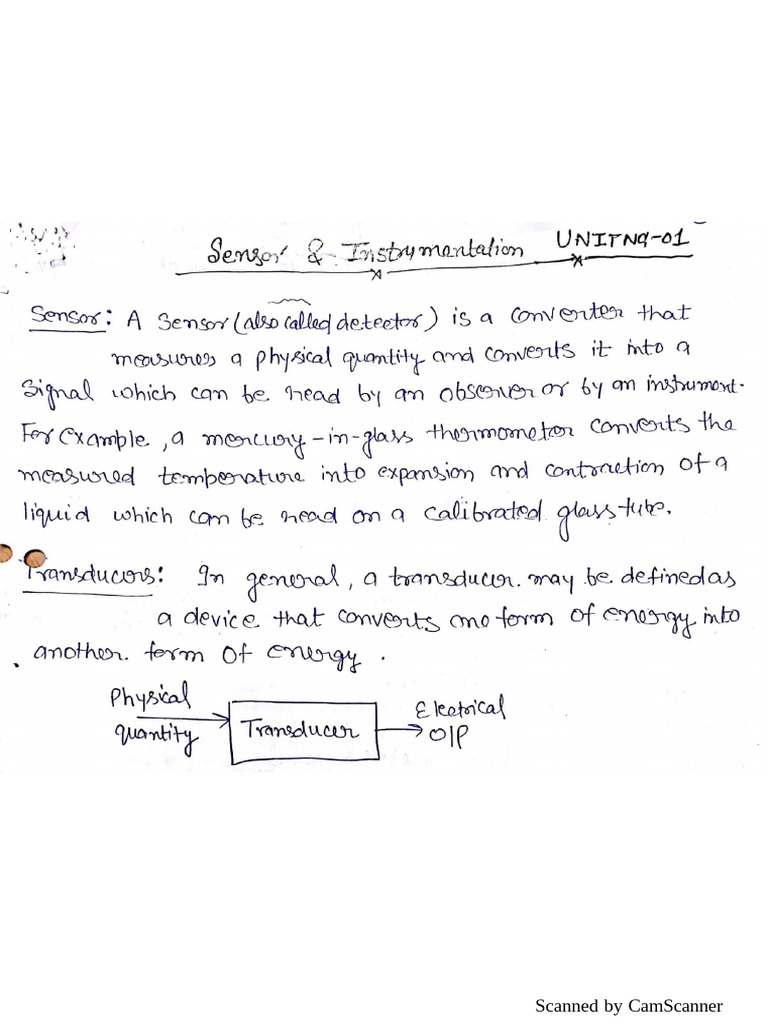 Sensor & Instrumentation UNIT No-01
Sensor: A Sensor (also called detector) is a converter that
measures a physical quantity and converts it into a
Signal which can be read by an observer or by an instrument.
For example, a mercury-in-glass thermometer converts the
measured temperature into expansion and contraction of a
liquid which can be read on a calibrated glass tube.
Transducers: In general, a transducer may be defined as
a device that converts one form of energy into
another form of energy.
Physical
quantity
Transducer
Electrical
O/P
Scanned by CamScanner